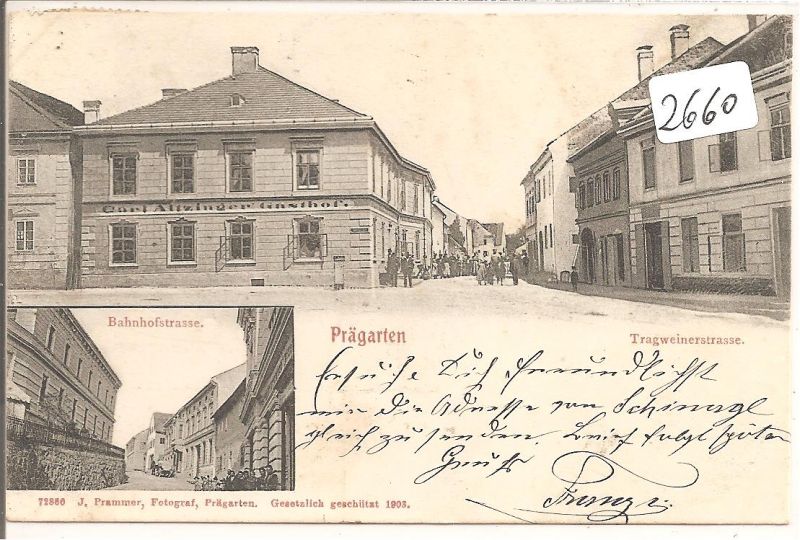 2660
Carl Altzinger Gasthof.
Bahnhofstrasse.
Prägarten
Tragweinerstrasse.
Ersuche Dich freundlichst
mir die Adresse von Schinagl
gleich zu senden. Brief folgt später
Gruß
Franzi
72860 J. Prammer, Fotograf, Prägarten. Gesetzlich geschützt 1903.